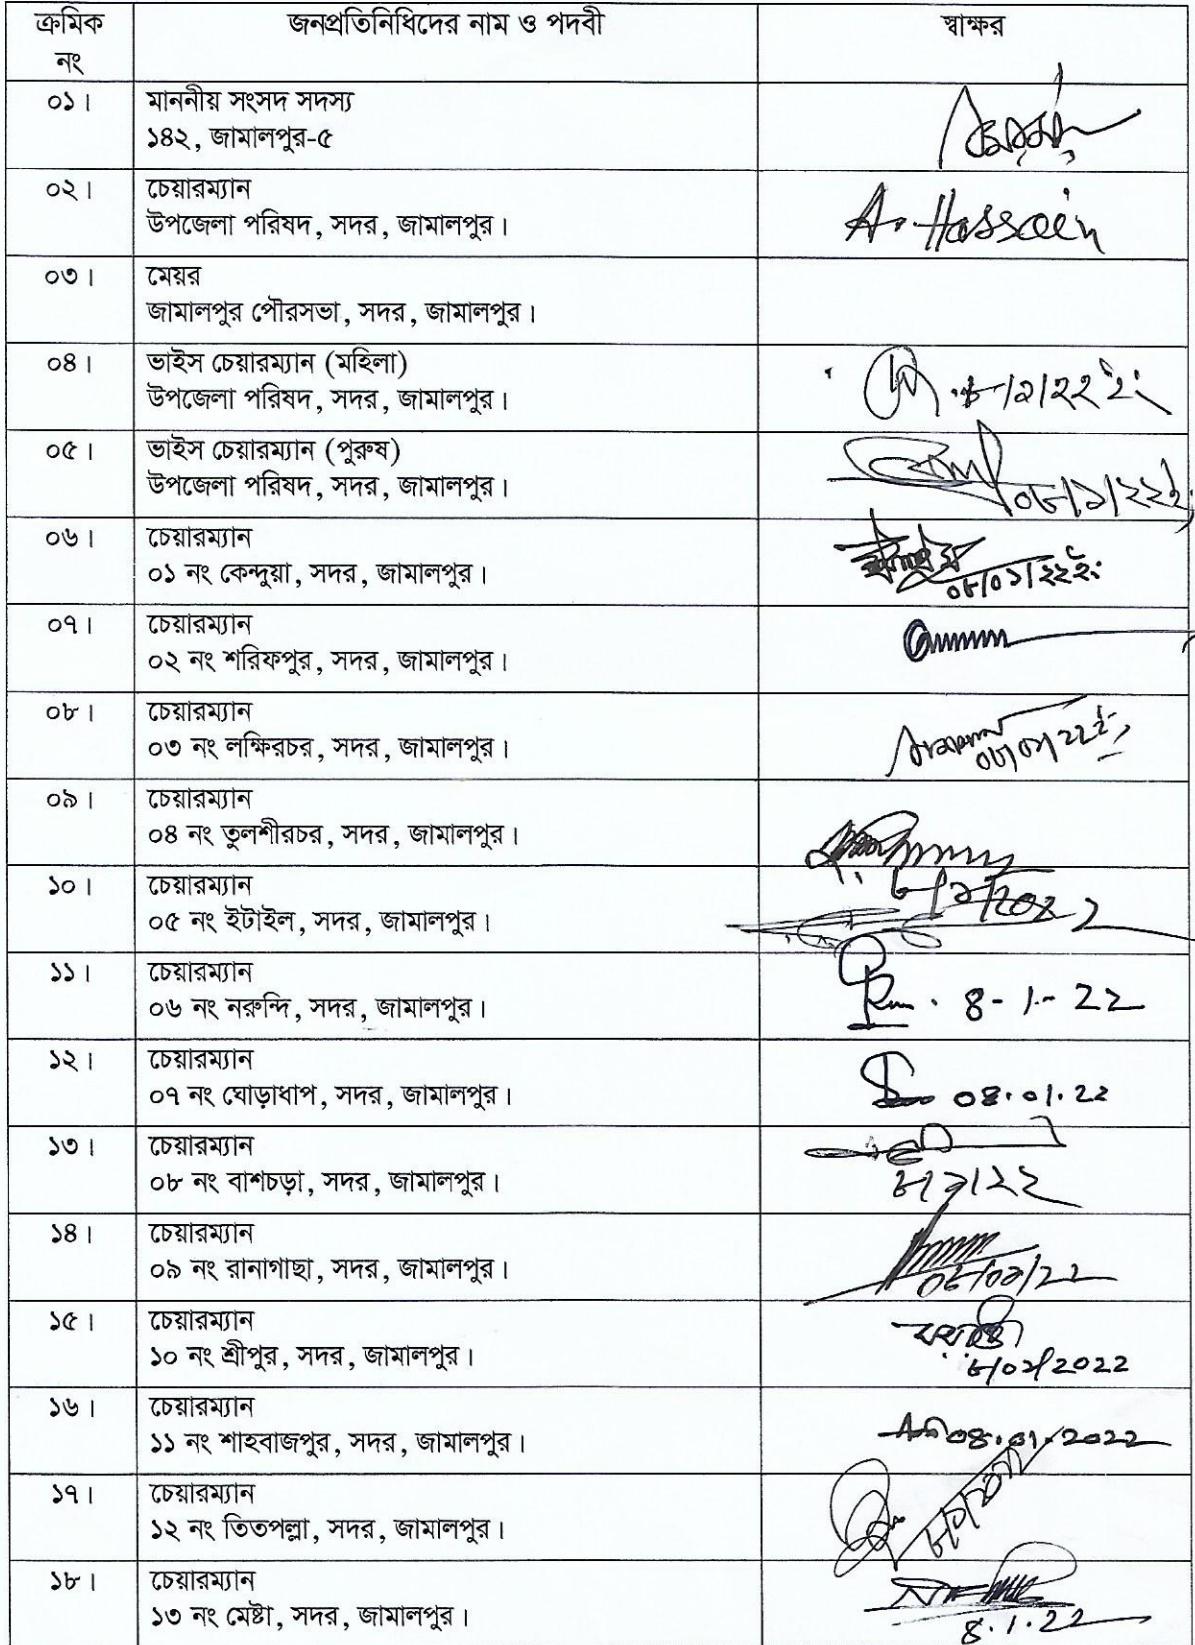 ক্রমিক নং জনপ্রতিনিধিদের নাম ও পদবী স্বাক্ষর
০১। মাননীয় সংসদ সদস্য
১৪২, জামালপুর-৫
০২। চেয়ারম্যান
উপজেলা পরিষদ, সদর, জামালপুর। A. Hossain
০৩। মেয়র
জামালপুর পৌরসভা, সদর, জামালপুর।
০৪। ভাইস চেয়ারম্যান (মহিলা)
উপজেলা পরিষদ, সদর, জামালপুর। ৮/১/২২ ইং
০৫। ভাইস চেয়ারম্যান (পুরুষ)
উপজেলা পরিষদ, সদর, জামালপুর। ০৮/১/২২ইং
০৬। চেয়ারম্যান
০১ নং কেন্দুয়া, সদর, জামালপুর। ০৮/০১/২২ইং
০৭। চেয়ারম্যান
০২ নং শরিফপুর, সদর, জামালপুর।
০৮। চেয়ারম্যান
০৩ নং লক্ষিরচর, সদর, জামালপুর। ০৮/০১/২২ইং
০৯। চেয়ারম্যান
০৪ নং তুলশীরচর, সদর, জামালপুর।
১০। চেয়ারম্যান ৮/১/২০২২
০৫ নং ইটাইল, সদর, জামালপুর।
১১। চেয়ারম্যান
০৬ নং নরুন্দি, সদর, জামালপুর। 8-1-22
১২। চেয়ারম্যান
০৭ নং ঘোড়াধাপ, সদর, জামালপুর। 08.01.22
১৩। চেয়ারম্যান
০৮ নং বাশচড়া, সদর, জামালপুর। ৮/১/২২
১৪। চেয়ারম্যান
০৯ নং রানাগাছা, সদর, জামালপুর। ০৮/০১/২২
১৫। চেয়ারম্যান
১০ নং শ্রীপুর, সদর, জামালপুর। ৮/০১/2022
১৬। চেয়ারম্যান
১১ নং শাহবাজপুর, সদর, জামালপুর। 08.01.2022
১৭। চেয়ারম্যান
১২ নং তিতপল্লা, সদর, জামালপুর।
১৮। চেয়ারম্যান
১৩ নং মেষ্টা, সদর, জামালপুর। 8.1.22